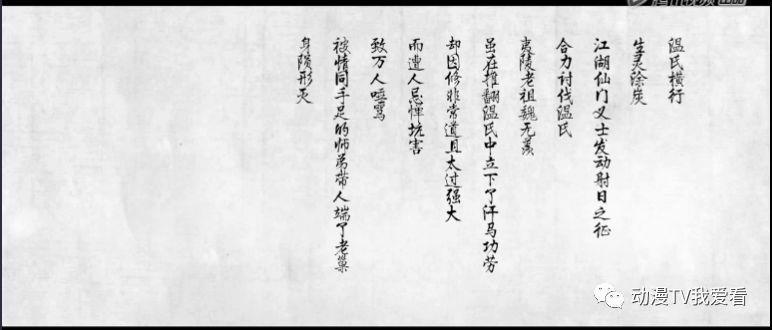 温氏横行
生灵涂炭
江湖仙门义士发动射日之征
合力讨伐温氏
夷陵老祖魏无羡
虽在推翻温氏中立下了汗马功劳
却因修非常道且太过强大
而遭人忌惮坑害
致万人唾骂
被情同手足的师弟带人端了老巢
身陨形灭
动漫TV我爱看